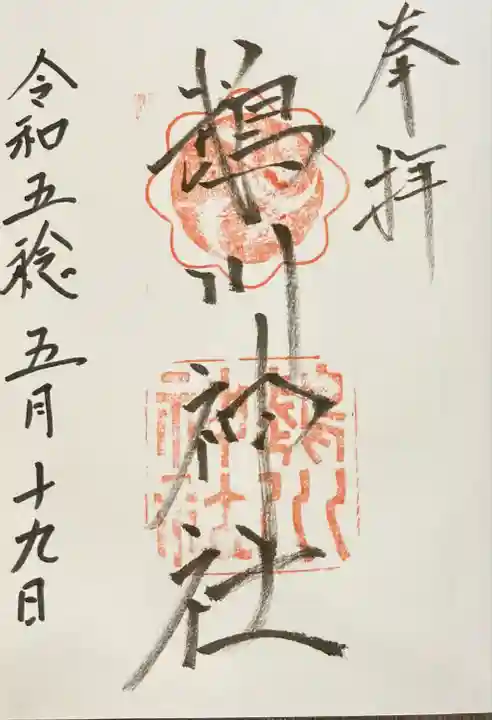 奉拝
鵜川神社
令和五稔五月十九日